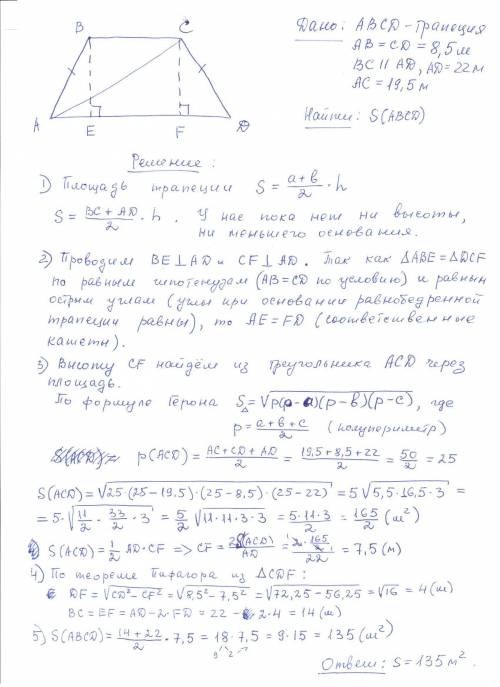 B
C
A
E
F
D
Дано: ABCD - трапеция
AB = CD = 8,5 м
BC || AD, AD = 22 м
AC = 19,5 м
Найти: S(ABCD)
Решение:
1) Площадь трапеции S = (a+в)/2 · h
S = (BC + AD)/2 · h. У нас пока нет ни высоты,
ни меньшего основания.
2) Проводим BE ⊥ AD и CF ⊥ AD. Так как ΔABE = ΔDCF
по равным гипотенузам (AB = CD по условию) и равным
острым углам (углы при основании равнобедренной
трапеции равны), то AE = FD (соответственные
катеты).
3) Высоту CF найдём из треугольника ACD через
площадь.
По формуле Герона S△ = √(p(p-a)(p-в)(p-c)), где
p = (a+в+c)/2 (полупериметр)
p(ACD) = (AC+CD+AD)/2 = (19,5+8,5+22)/2 = 50/2 = 25
S(ACD) = √(25·(25-19,5)·(25-8,5)·(25-22)) = 5√(5,5·16,5·3) =
= 5·√(11/2 · 33/2 · 3) = 5/2 √(11·11·3·3) = 5·11·3/2 = 165/2 (м²)
S(ACD) = 1/2 AD·CF => CF = 2S(ACD)/AD = (2·165/2)/22 = 7,5 (м)
4) По теореме Пифагора из ΔCDF:
DF = √(CD² - CF²) = √(8,5² - 7,5²) = √(72,25 - 56,25) = √16 = 4 (м)
BC = EF = AD - 2·FD = 22 - 2·4 = 14 (м)
5) S(ABCD) = (14+22)/2 · 7,5 = 18·7,5 = 9·15 = 135 (м²)
9 2
Ответ: S = 135 м².